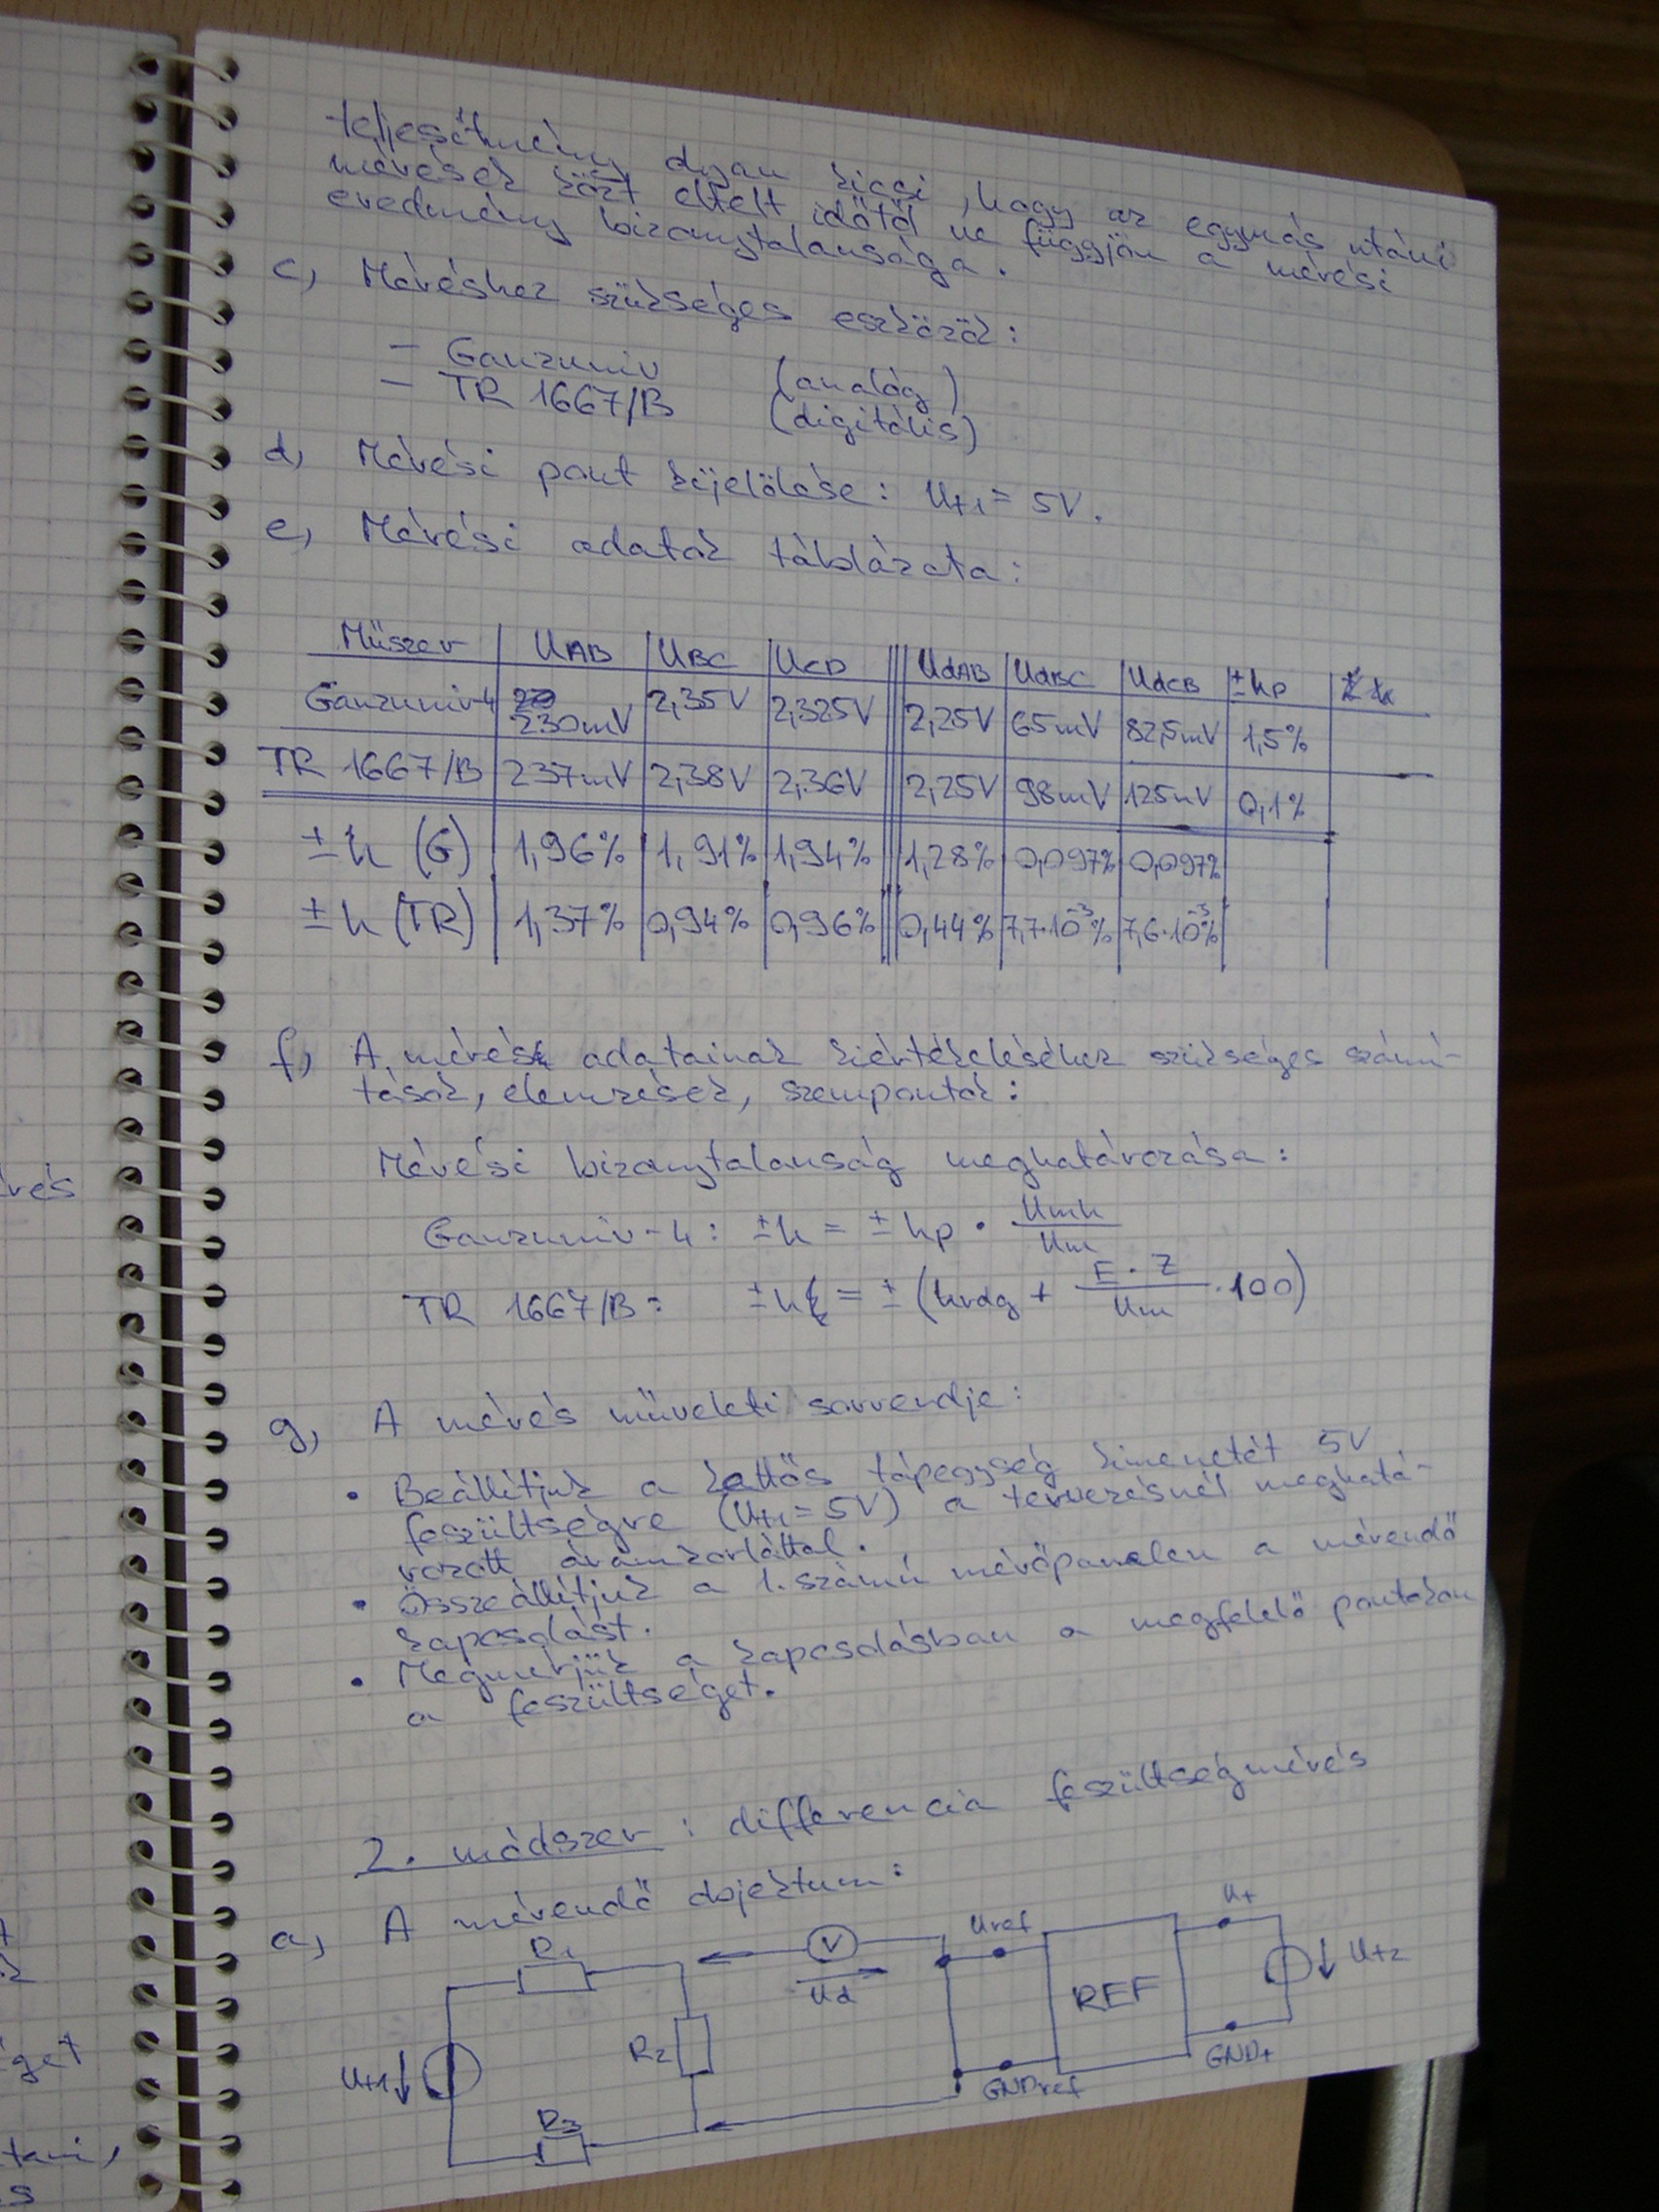 teljesítmény olyan kicsi, hogy az egymás utáni
mérések közt eltelt időtől ne függjön a mérési
eredmény bizonytalansága.
c, Méréshez szükséges eszközök:
- Ganzuniv (analóg)
- TR 1667/B (digitális)
d, Mérési pont kijelölése: Ut1 = 5V.
e, Mérési adatok táblázata:
Műszer UAB UBC UCD UdAB UdBC UdCB ±hp
Ganzuniv-4 230mV 2,35V 2,325V 2,25V 65mV 82,5mV 1,5%
TR 1667/B 237mV 2,38V 2,36V 2,25V 98mV 125mV 0,1%
±h (G) 1,96% 1,91% 1,94% 1,28% 0,097% 0,097%
±h (TR) 1,37% 0,94% 0,96% 0,44% 7,7·10⁻³% 7,6·10⁻³%
f, A mérés adatainak kiértékeléséhez szükséges számí-
tások, elemzések, szempontok:
Mérési bizonytalanság meghatározása:
Ganzuniv-4: ±h = ±hp · Umh/Um
TR 1667/B: ±h = ±(hrdg + E·Z/Um ·100)
g, A mérés műveleti sorrendje:
• Beállítjuk a kettős tápegység kimenetét 5V
feszültségre (Ut1=5V) a tervezésnél meghatá-
rozott áramkorláttal.
• Összeállítjuk a 1. számú mérőpanelen a mérendő
kapcsolást.
• Megmérjük a kapcsolásban a megfelelő pontokon
a feszültséget.
2. módszer: differencia feszültségmérés
a, A mérendő objektum:
R1 V Ud Uref REF U+ Ut2
Ut1 R2 GNDref GND+
R3
rés
get
tani,
s